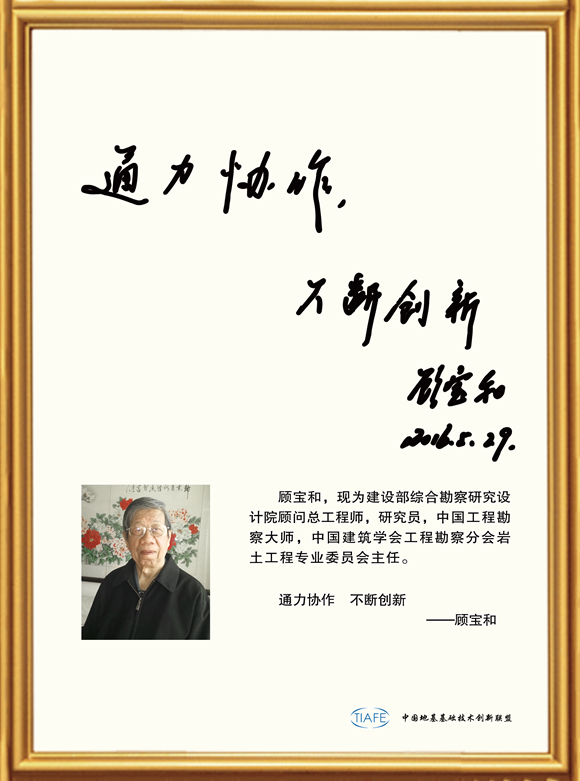 通力协作，
不断创新
顾宝和
2016.5.29.
顾宝和，现为建设部综合勘察研究设
计院顾问总工程师，研究员，中国工程勘
察大师，中国建筑学会工程勘察分会岩
土工程专业委员会主任。
通力协作　不断创新
——顾宝和
TIAFE 中国地基基础技术创新联盟